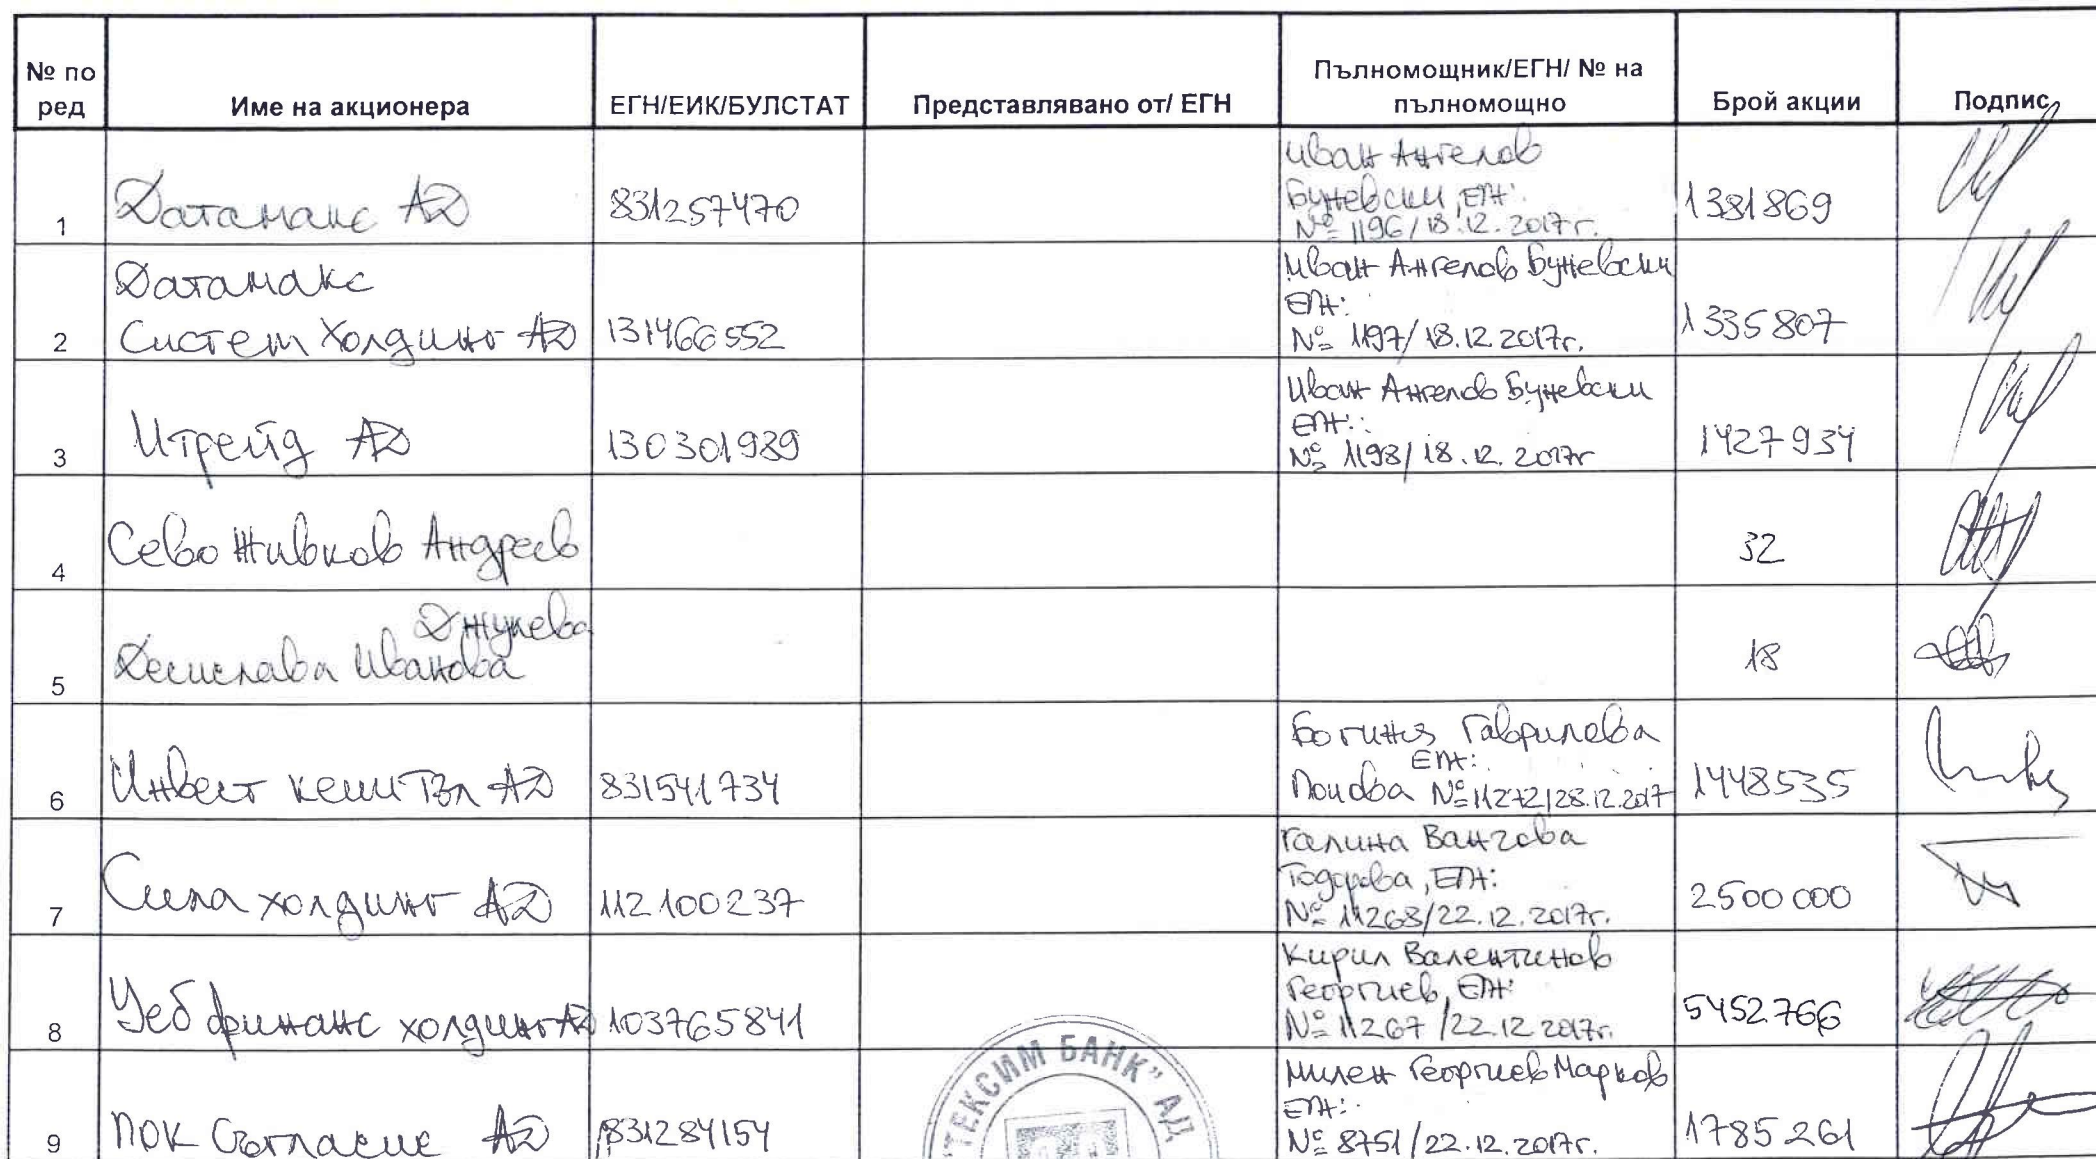 № по ред Име на акционера ЕГН/ЕИК/БУЛСТАТ Представлявано от/ ЕГН Пълномощник/ЕГН/ № на пълномощно Брой акции Подпис
1 Датамакс АД 831257470 Иван Ангелов
Буневски, ЕГН:
№ 1196/18.12.2017г. 1381869
2 Датамакс
Систем Холдинг АД 131466552 Иван Ангелов Буневски
ЕГН:
№ 1197/18.12.2017г. 1335807
3 Итрейд АД 130301989 Иван Ангелов Буневски
ЕГН:
№ 1198/18.12.2017г 1427934
4 Сево Живков Андреев 32
5 Десислава Иванова
Джукева 18
6 Инвест кепитъл АД 831541734 Богиня Гаврилова
ЕГН:
Попова № 11272/28.12.2017 1448535
7 Сила холдинг АД 112100237 Галина
Тодорова, ЕГН:
№ 11268/22.12.2017г. 2500000
8 Уеб финанс холдинг АД 103765841 Кирил Валентинов
Георгиев, ЕГН:
№ 11267/22.12.2017г. 5452766
9 ПОК Съгласие АД 831284154 Милен Георгиев Марков
ЕГН:
№ 8751/22.12.2017г. 1785261
"ТЕКСИМ БАНК" АД